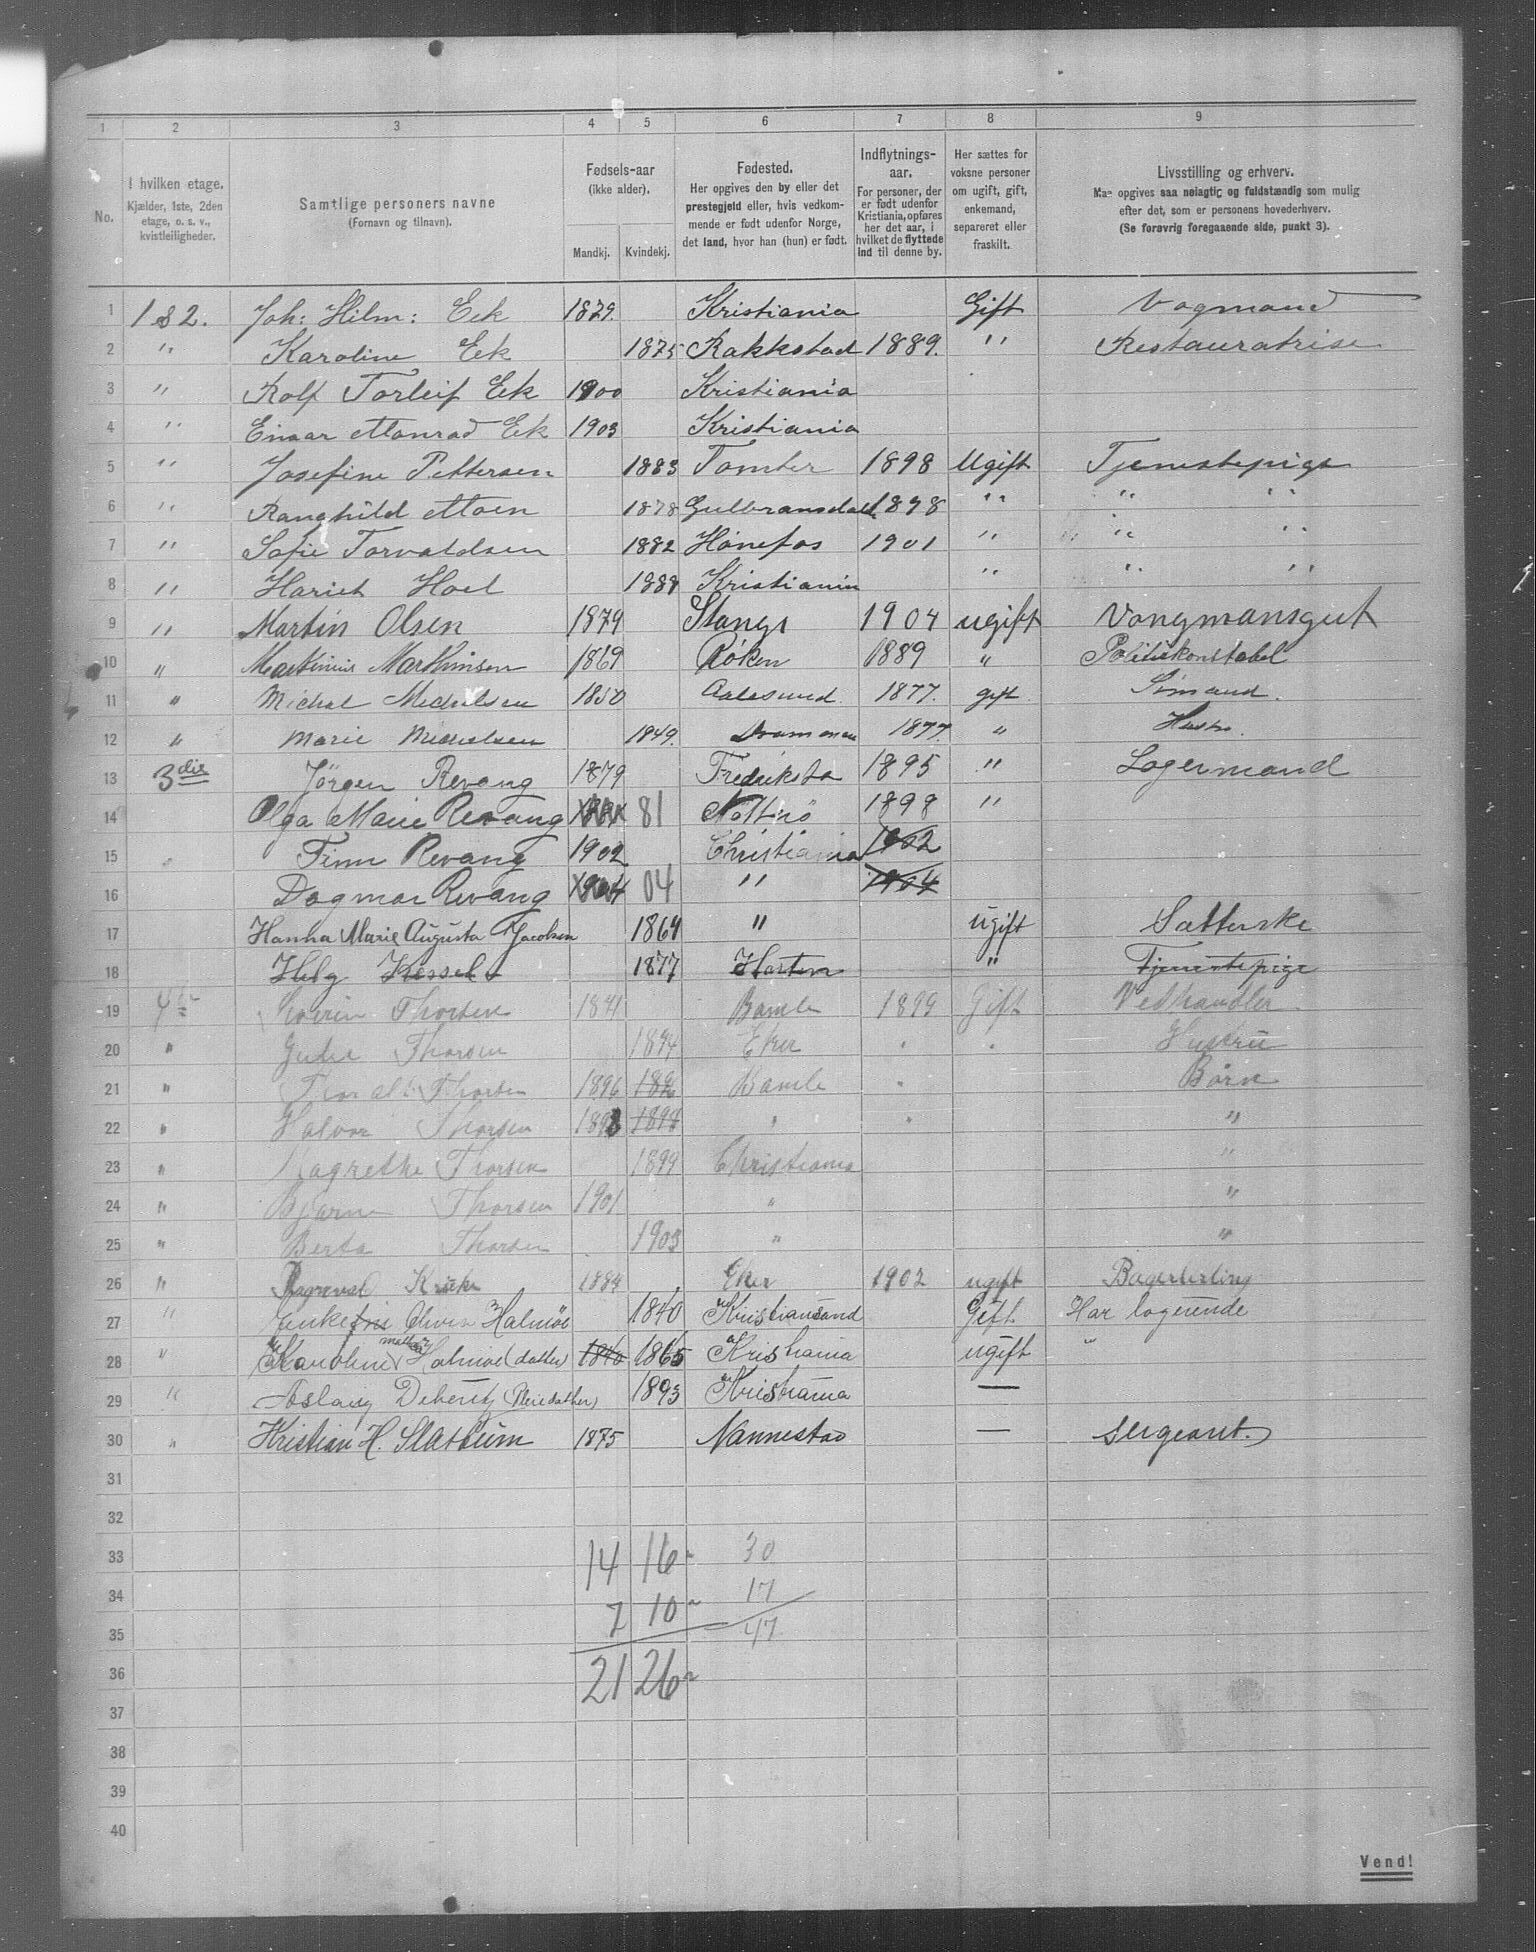 1 2 3 4 5 6 7 8 9
No. I hvilken etage. Kjælder, 1ste, 2den etage, o. s. v., kvistleiligheder. Samtlige personers navne (Fornavn og tilnavn). Fødsels-aar (ikke alder). Mandkj. Kvindekj. Fødested. Her opgives den by eller det prestegjeld eller, hvis vedkommende er født udenfor Norge, det land, hvor han (hun) er født. Indflytnings-aar. For personer, der er født udenfor Kristiania, opføres her det aar, i hvilket de flyttede ind til denne by. Her sættes for voksne personer om ugift, gift, enkemand, separeret eller fraskilt. Livsstilling og erhverv. Man opgives saa nøiagtig og fuldstændig som mulig efter det, som er personens hovederhverv. (Se forøvrig foregaaende side, punkt 3).
1 1 & 2. Joh: Hilm: Eek 1879. Kristiania Gift Vogmand
2 " Karoline Eek 1875 Rakkestad 1889. " Restauratrise
3 " Rolf Torleif Eek 1900 Kristiania
4 " Einar Monrad Eek 1903 Kristiania
5 " Josefine Pettersen 1883 Tomter 1898 Ugift Tjenestepige
6 " Ranghild Moen 1878 Gulbransdal 1898 " " "
7 " Sofie Torvaldsen 1882 Hønefos 1901 " " "
8 " Hariet Hoel 1888 Kristiania " " "
9 " Martin Olsen 1879 Stange 1904 ugift Vongmansgut
10 " Martinius Marthinsen 1869 Røken 1889 " Politikonstabel
11 " Michal Michelsen 1850 Aalesund 1877. gift Sömand.
12 " Marie Michelsen 1849. Drammen 1877. " Hustr.
13 3die Jörgen Revang 1879 Fredriksta 1895 " Lagermand
14 Olga Marie Revang 81 Nøtterö 1898 "
15 " Finn Revang 1902 Christiania 1902
16 Dagmar Revang 1904 04 " 1904
17 Hanna Marie Augusta Jacobsen 1864 " ugift Sætterske
18 1877 " Tjenestepige
19 4de Thorsen 1841 Bamle 1899 Gift Vedhandler
20 " Thorsen 1894 Eker " " Hustru
21 " Thorsen 1896 1896 Bamle " Børn
22 " Halvor Thorsen 1898 1898 " " "
23 " Magrethe Thorsen 1899 Christiania "
24 " Bjarne Thorsen 1901 " "
25 " Berta Thorsen 1903 " "
26 " 1884 Eker 1902 ugift Bagerlerling
27 " Halmöe 1840 Kristiansand Gift Har logerende
28 " Karoline Halmöe (datter) 1840 1865 Kristiania ugift "
29 " Aslaug (Pleiedather) 1893 Kristiania —
30 " Kristian H. Slatbum 1875 Nannestad — Sergeant.
31
32
33 14 16 30
34 7 10 17
35 47
36 21 26
37
38
39
40
Vend!